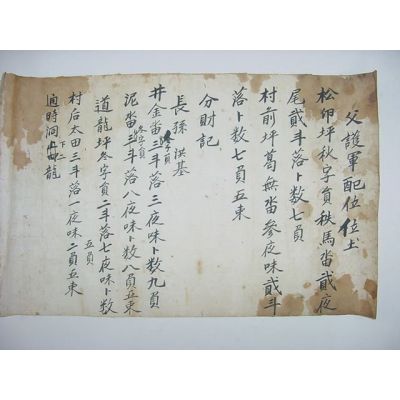 父護軍配位位土
松卯坪秋字負秩馬畓貳夜
尾貳斗落卜数七員
村前坪葛無畓參夜味貳斗
落卜数七員五束
分財記
長孫 洪基
井金畓三斗落三夜味卜数九員
泥畓三斗落八夜味卜数八員五束
道龍坪冬字負二斗落七夜味卜数
五員
村后太田三斗落一夜味二員五束
適時洞 龍